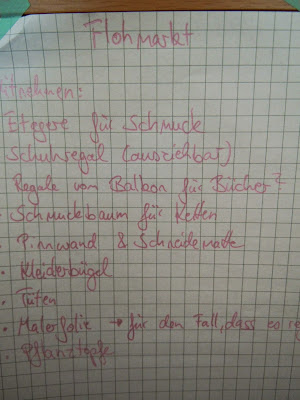 Flohmarkt
Mitnehmen:
Etegere für Schmuck
Schuhregal (ausziehbar)
Regale vom Balkon für Bücher?
· Schmuckbaum für Ketten
· Pinnwand & Schneidematte
· Kleiderbügel
· Tüten
· Malerfolie → für den Fall, dass es reg
· Pflanztöpfe